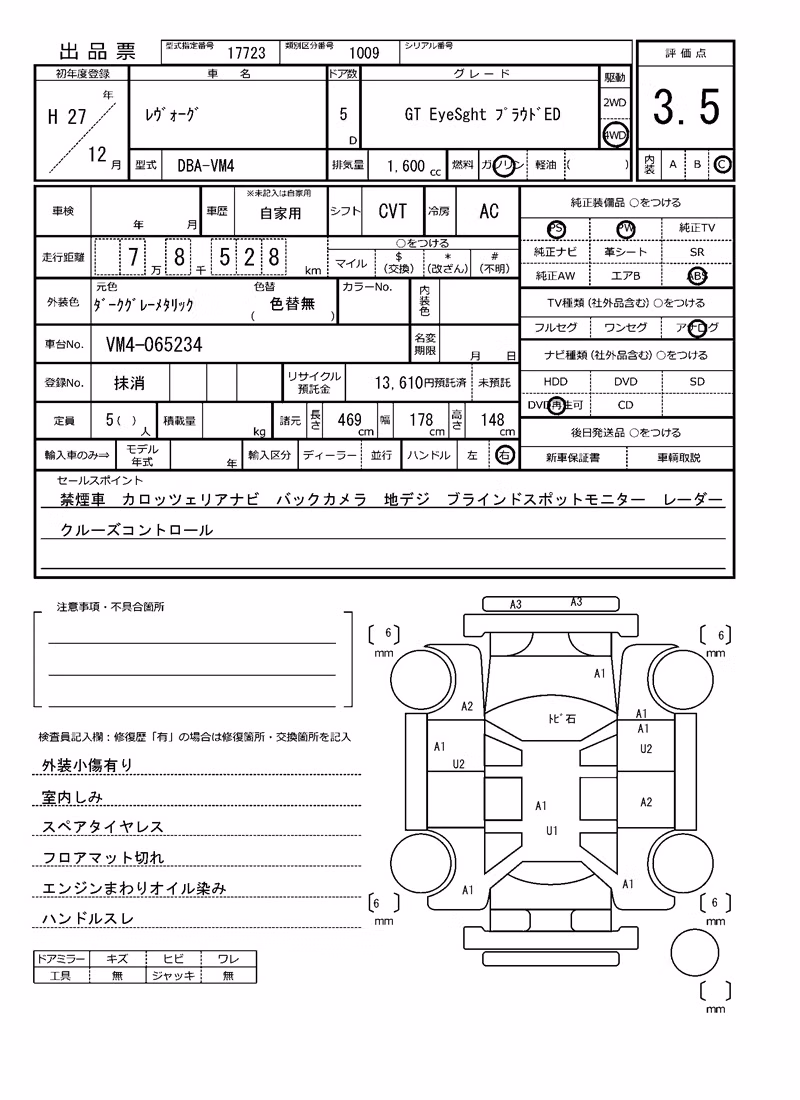 出品票 型式指定番号 17723 類別区分番号 1009 シリアル番号
評価点
3.5
内装 A B C
初年度登録 車名 ドア数 グレード 駆動
H 27 年 12 月 ﾚｳﾞｫｰｸﾞ 5 D GT EyeSght ﾌﾟﾗｳﾄﾞED 2WD
4WD
型式 DBA-VM4 排気量 1,600 cc 燃料 ガソリン 軽油 ( )
車検 年 月 車歴 ※未記入は自家用 自家用 シフト CVT 冷房 AC
走行距離 7 万 8 千 5 2 8 km ○をつける
マイル $ (交換) * (改ざん) # (不明)
外装色 元色 ﾀﾞｰｸｸﾞﾚｰﾒﾀﾘｯｸ 色替 ( 色替無 ) カラーNo. 内装色
車台No. VM4-065234 名変期限 月 日
登録No. 抹消 リサイクル預託金 13,610円預託済 未預託
定員 5( ) 人 積載量 kg 諸元 長さ 469 cm 幅 178 cm 高さ 148 cm
輸入車のみ⇒ モデル年式 年 輸入区分 ディーラー 並行 ハンドル 左 右
純正装備品 ○をつける
PS PW 純正TV
純正ナビ 革シート SR
純正AW エアB ABS
TV種類(社外品含む)○をつける
フルセグ ワンセグ アナログ
ナビ種類(社外品含む)○をつける
HDD DVD SD
DVD再生可 CD
後日発送品 ○をつける
新車保証書 車輌取説
セールスポイント
禁煙車 カロッツェリアナビ バックカメラ 地デジ ブラインドスポットモニター レーダー
クルーズコントロール
注意事項・不具合箇所
検査員記入欄：修復歴「有」の場合は修復箇所・交換箇所を記入
外装小傷有り
室内しみ
スペアタイヤレス
フロアマット切れ
エンジンまわりオイル染み
ハンドルスレ
ドアミラー キズ ヒビ ワレ
工具 無 ジャッキ 無
A3 A3
[ 6 ] mm
[ 6 ] mm
A1
A2
ﾄﾋﾞ石
A1
A1
A1
U2
U2
A1
A2
U1
A1
A1
[ 6 ] mm
[ 6 ] mm
[ ] mm